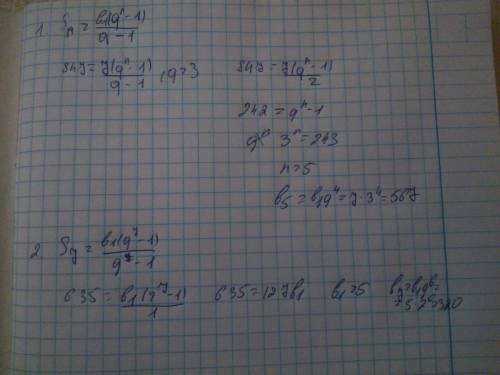 1. Sn = b1(qⁿ-1)/q-1
847 = 7(qⁿ-1)/q-1, q=3
847 = 7(qⁿ-1)/2
242 = qⁿ-1
3ⁿ = 243
n=5
b5 = b1q⁴ = 7·3⁴ = 567
2. S7 = b1(q⁷-1)/q-1
635 = b1(2⁷-1)/1
635 = 127b1
b1=5
b7=b1q⁶=